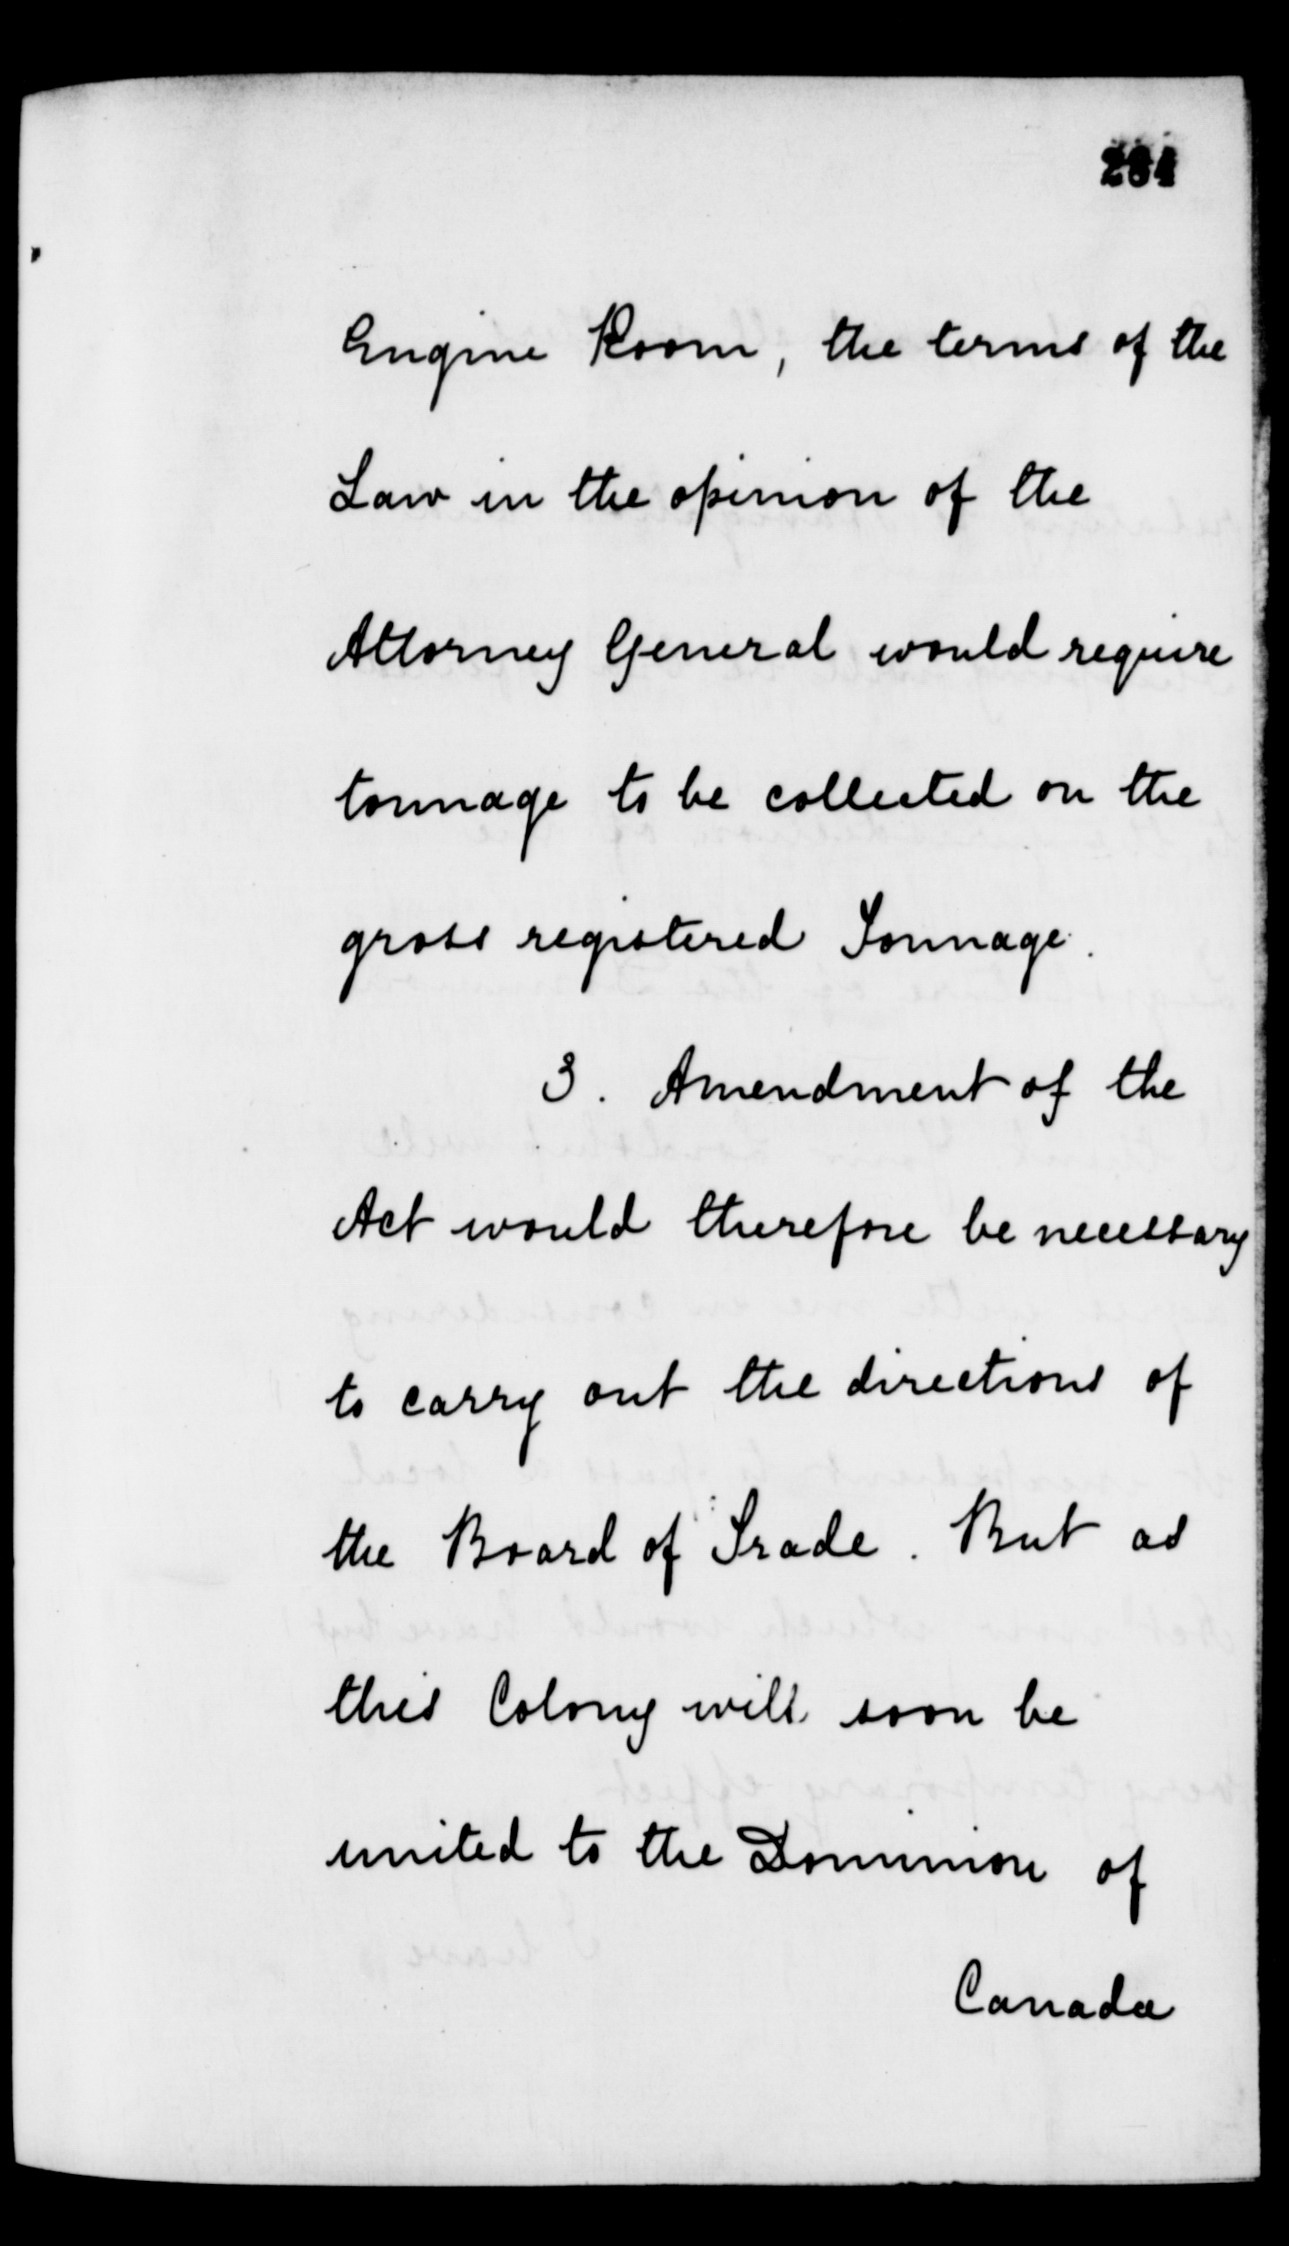 Engine Room, the terms of the
Law in the opinion of the
Attorney General would require
tonnage to be collected on the
gross registered Tonnage.
3. Amendment of the
Act would therefore be necessary
to carry out the directions of
the Board of Trade. But as
this Colony will soon be
united to the Dominion of
Canada